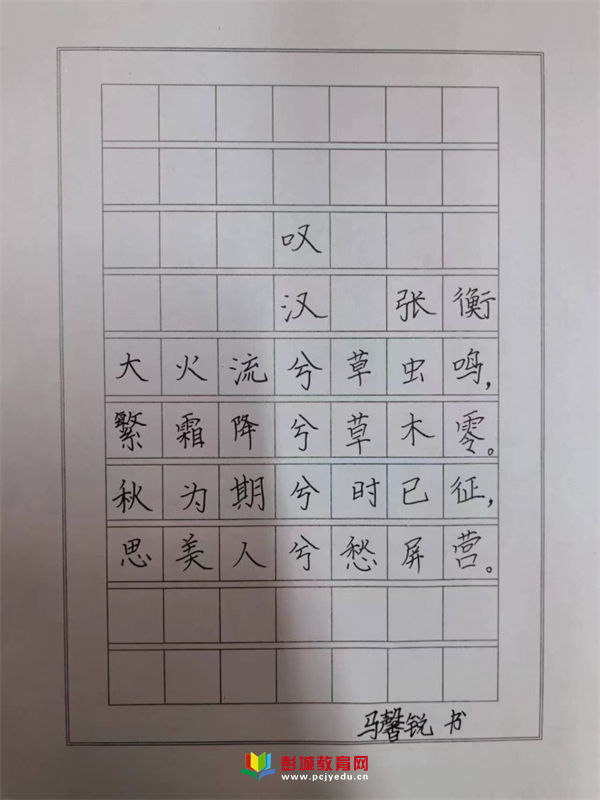 叹
汉 张衡
大火流兮草虫鸣,
繁霜降兮草木零。
秋为期兮时已征,
思美人兮愁屏营。
马馨锐 书
彭城教育网
www.pcjyedu.cn